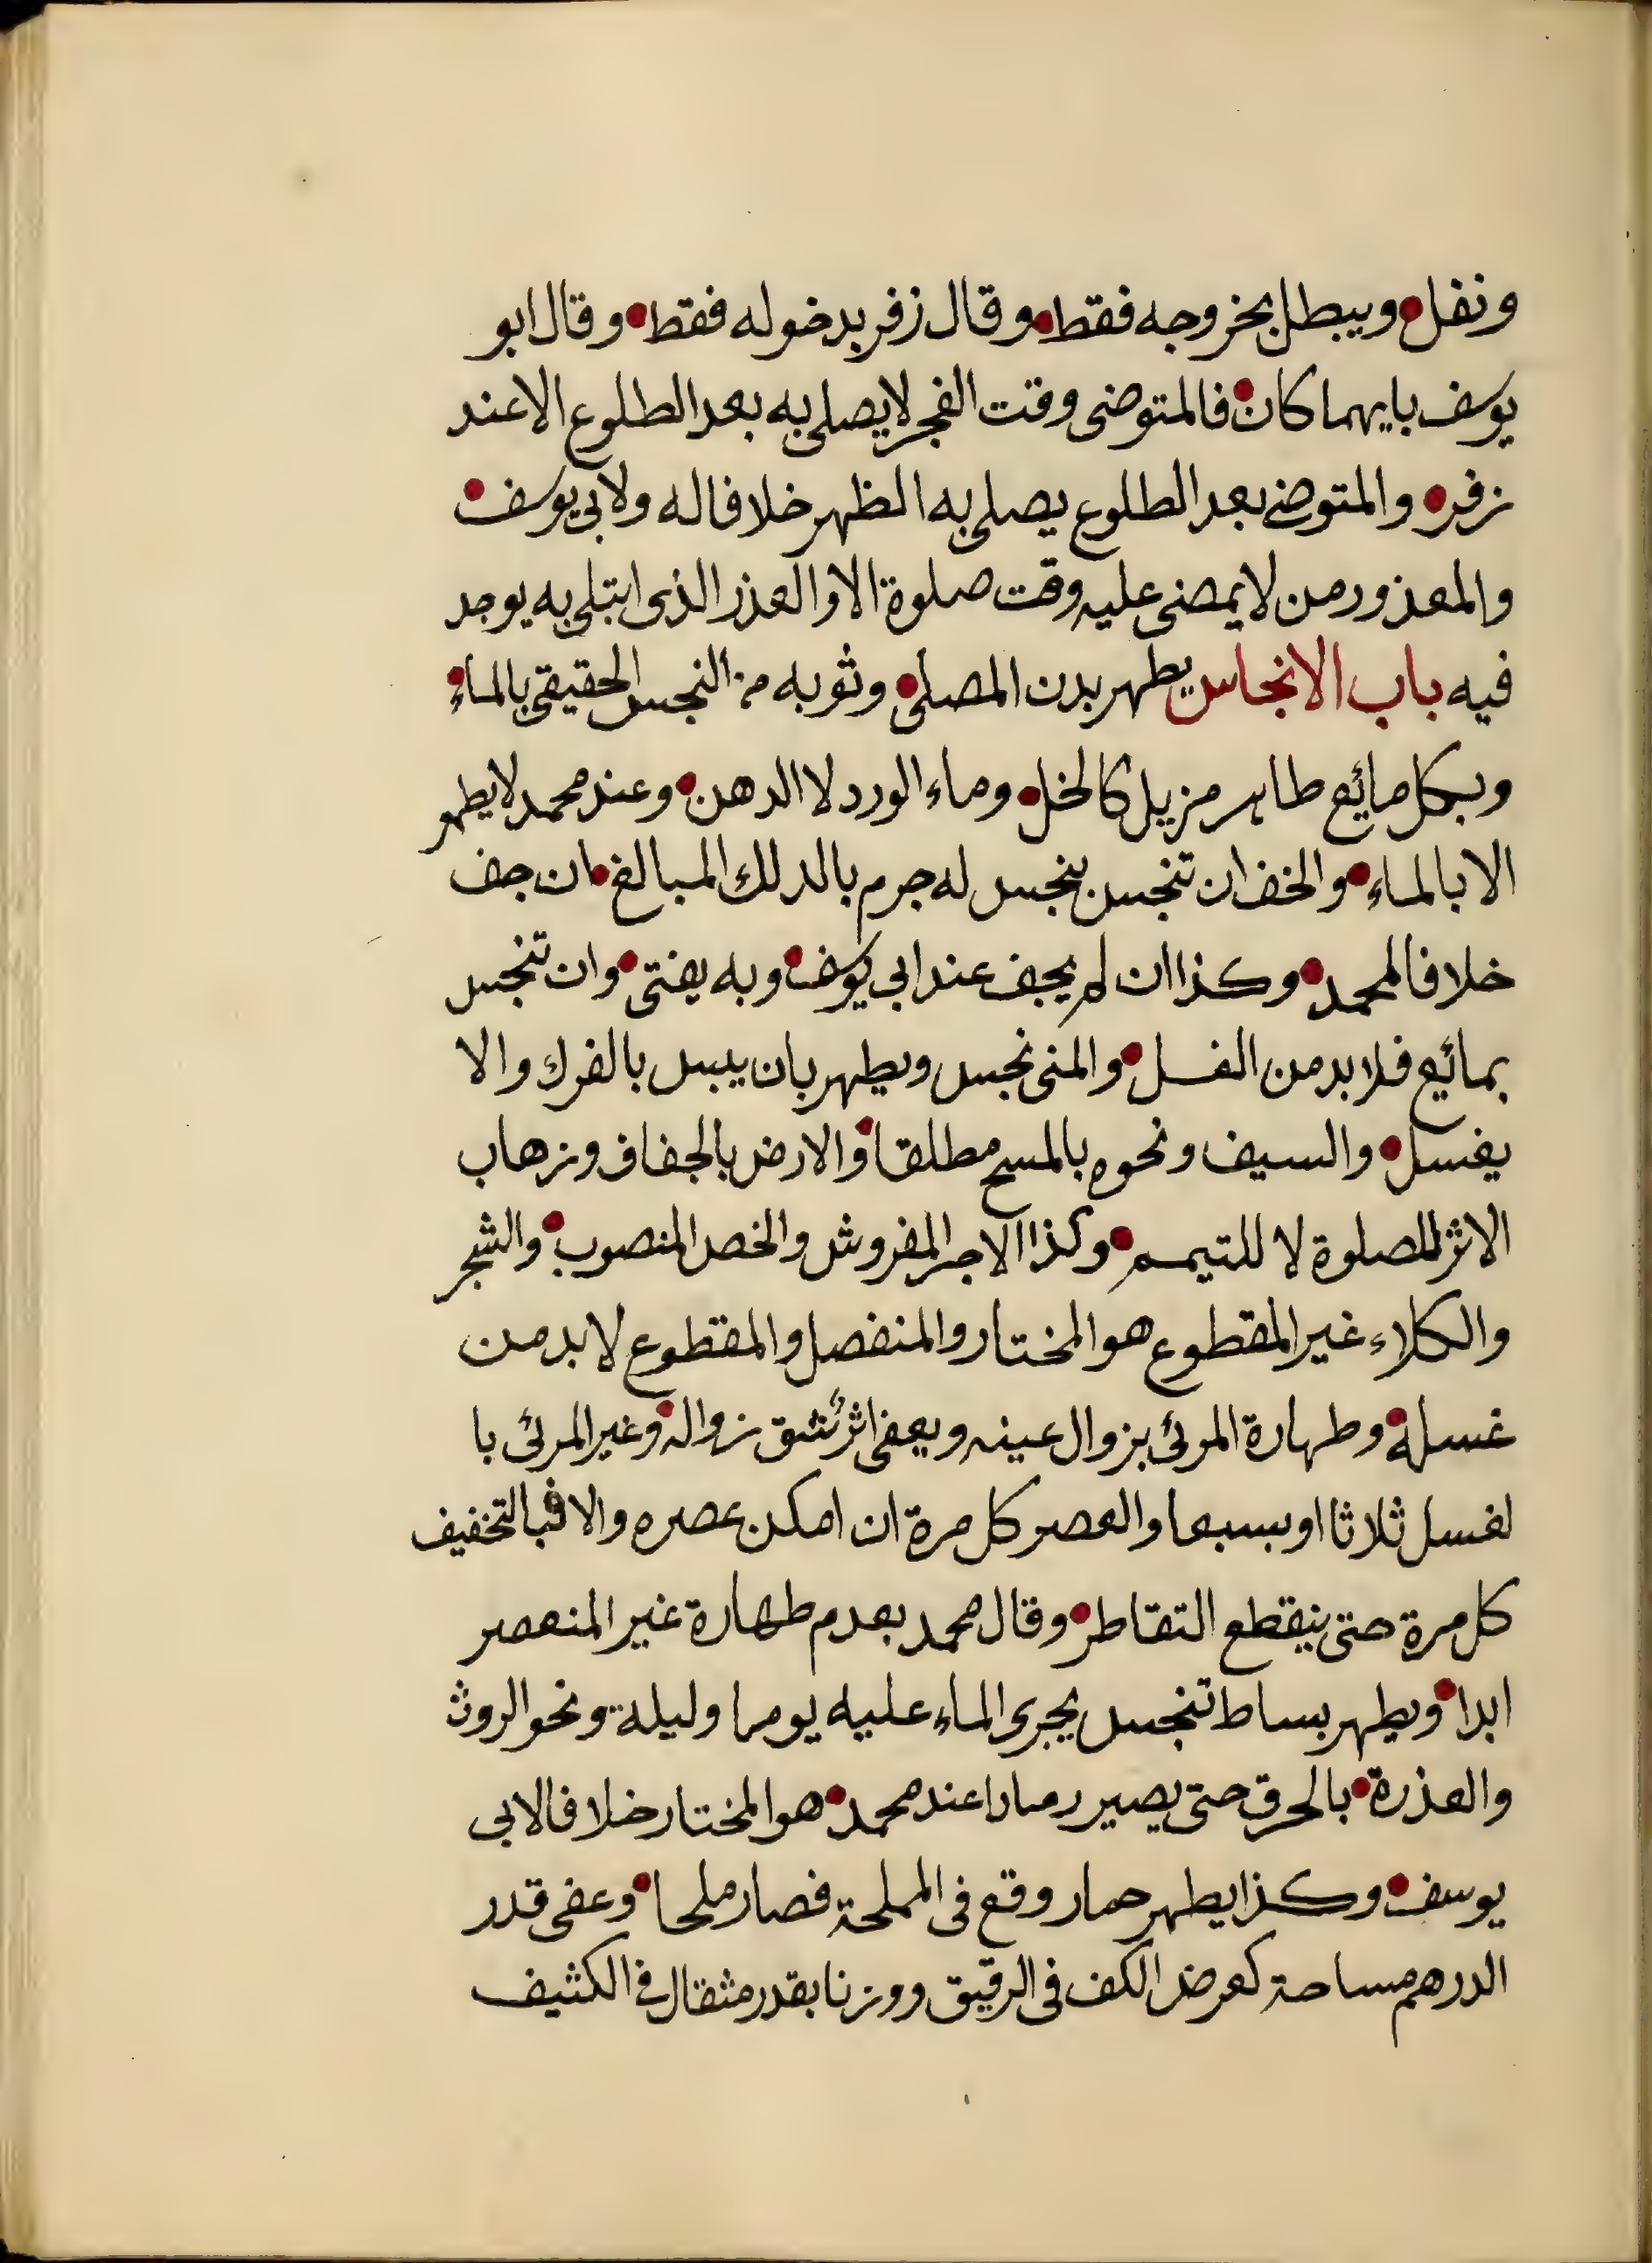 ونفل • ويبطل بخروجه فقط • وقال زفر بدخوله فقط • وقال ابو
يوسف بايهما كان • فالمتوضى وقت الفجر لا يصلى به بعد الطلوع الا عند
زفر • والمتوضى بعد الطلوع يصلى به الظهر خلافا له ولابى يوسف •
والمعذور من لا يمضى عليه وقت صلوة الا والعذر الذى ابتلى به يوجد
فيه باب الانجاس يطهر بدن المصلى • وثوبه من النجس الحقيقى بالماء •
وبكل مائع طاهر مزيل كالخل • وماء الورد لا الدهن • وعند محمد لا يطهر
الا بالماء • والخف ان تنجس بنجس له جرم بالدلك المبالغ • ان جف
خلافا لمحمد • وكذا ان لم يجف عند ابى يوسف • وبه يفتى • وان تنجس
بمائع فلا بد من الغسل • والمنى نجس ويطهر بان يبس بالفرك والا
يغسل • والسيف ونحوه بالمسح مطلقا • والارض بالجفاف وذهاب
الاثر للصلوة لا للتيمم • وكذا الاجر المفروش والخص المنصوب • والشجر
والكلاء غير المقطوع هو المختار والمنفصل والمقطوع لا بد من
غسله • وطهارة المرئى بزوال عينه ويعفى اثر شق زواله • وغير المرئى با
لغسل ثلاثا او بسبعا والعصر كل مرة ان امكن عصره والا فبالتخفيف
كل مرة حتى ينقطع التقاطر • وقال محمد بعدم طهارة غير المنعصر
ابدا • ويطهر بساط تنجس يجرى الماء عليه يوما وليلة • ونحو الروث
والعذرة • بالحرق حتى يصير رمادا عند محمد • هو المختار خلافا لابى
يوسف • وكذا يطهر حمار وقع فى المملحة فصار ملحا • وعفى قدر
الدرهم مساحة كعرض الكف فى الرقيق ووزنا بقدر مثقال فى الكثيف